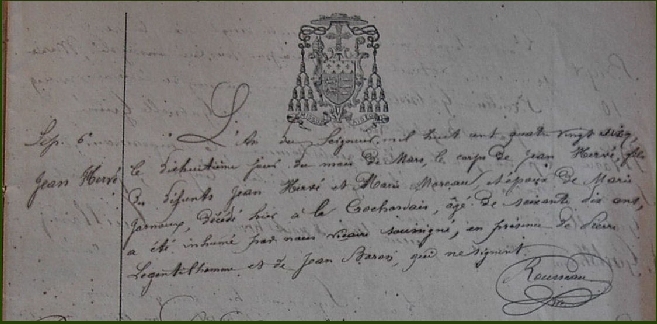 Sep. 6.
Jean Hervé
L'An du Seigneur, mil huit cent quatre vingt cinq,
le dixhuitième jour du mois de Mars, le corps de Jean Hervé, fils
des défunts Jean Hervé et Marie Moreau, et époux de Marie
Garnaux, décédé hier à la Crochardais, âgé de soixante dix ans,
a été inhumé par nous vicaire soussigné, en présence de Pierre
Legentilhomme et de Jean Baron, qui ne signent.
Rousseau